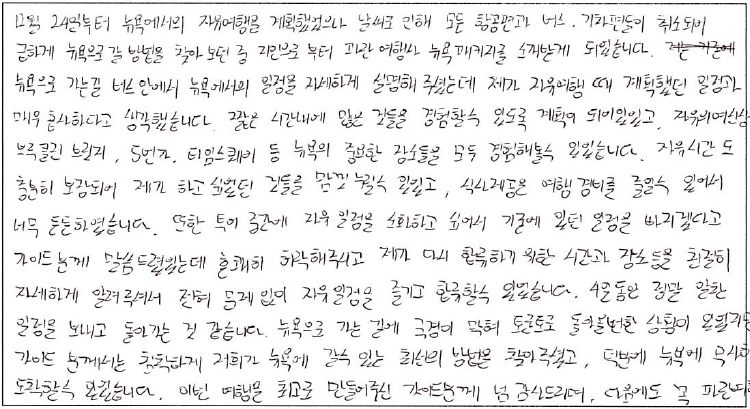 12월 24일부터 뉴욕에서의 자유여행을 계획했었으나 날씨로 인해 모든 항공편과 버스, 기차편들이 취소되어
급하게 뉴욕으로 갈 방법을 찾아보던 중 지인으로 부터 파란 여행사 뉴욕패키지를 소개받게 되었습니다.
뉴욕으로 가는길 버스 안에서 뉴욕에서의 일정을 자세하게 설명해 주셨는데 제가 자유여행 때 계획했던 일정과
매우 흡사하다고 생각했습니다. 짧은 시간내에 많은 것들을 경험할수 있도록 계획이 되어있었고, 자유의여신상
브루클린 브릿지, 5번가, 타임스퀘어 등 뉴욕의 중요한 장소들을 모두 경험해볼수 있었습니다. 자유시간 도
충분히 보장되어 제가 하고 싶었던 것들을 맘껏 누릴수 있었고, 식사제공은 여행 경비를 줄일수 있어서
너무 든든하였습니다. 또한 투어 중간에 자유 일정을 소화하고 싶어서 기존에 있던 일정을 빠지겠다고
가이드분께 말씀드렸었는데 흔쾌히 허락해주시고 제가 다시 합류하기 위한 시간과 장소들을 친절히
자세하게 알려주셔서 전혀 문제 없이 자유일정을 즐기고 합류할수 있었습니다. 4일동안 정말 알찬
일정을 보내고 돌아가는 것 같습니다. 뉴욕으로 가는 길에 국경이 막혀 토론토로 돌아올뻔한 상황이 있었지만
가이드 분께서는 침착하게 저희가 뉴욕에 갈수 있는 최선의 방법을 찾아주셨고, 덕분에 뉴욕에 무사히
도착할수 있었습니다. 이번 여행을 최고로 만들어주신 가이드분께 넘 감사드리며, 다음에도 꼭 파란여행